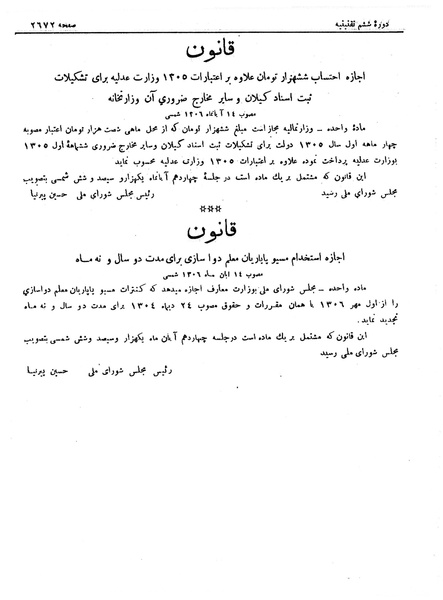 دورهٔ ششم تقنینیه
صفحه ۲۶۷۲
قانون
اجازه احتساب ششهزار تومان علاوه بر اعتبارات ۱۳۰۵ وزارت عدلیه برای تشکیلات
ثبت اسناد گیلان و سایر مخارج ضروری آن وزارتخانه
مصوب ۱۴ آبانماه ۱۳۰۶ شمسی
مادهٔ واحده ــ وزارتمالیه مجاز است مبلغ ششهزار تومان که از محل ماهی شصت هزار تومان اعتبار مصوبه
چهار ماهه اول سال ۱۳۰۵ دولت برای تشکیلات ثبت اسناد گیلان وسایر مخارج ضروری ششماههٔ اول ۱۳۰۵
بوزارت عدلیه پرداخت نموده علاوه بر اعتبارات ۱۳۰۵ وزارت عدلیه محسوب نماید
این قانون که مشتمل بر یك ماده است در جلسهٔ چهاردهم آبانماه یکهزارو سیصد و شش شمسی بتصویب
مجلس شورای ملی رسید
رئیس مجلس شورای ملی حسین پیرنیا
***
قانون
اجازه استخدام مسیو پاپاریان معلم دوا سازی برای مدت دو سال و نه ماه
مصوب ۱۴ ابان ماه ۱۳۰۶ شمسی
ماده واحده ــ مجلس شورای ملی بوزارت معارف اجازه میدهد که کنترات مسیو پاپاریان معلم دواسازی
را از اول مهر ۱۳۰۶ با همان مقررات و حقوق مصوب ۲۴ دیماه ۱۳۰۴ برای مدت دو سال و نه ماه
تجدید نماید.
این قانون که مشتمل بر یك ماده است درجلسه چهاردهم آبان ماه یکهزار وسیصد وشش شمسی بتصویب
مجلس شورای ملی رسید
رئیس مجلس شورای ملی حسین پیرنیا